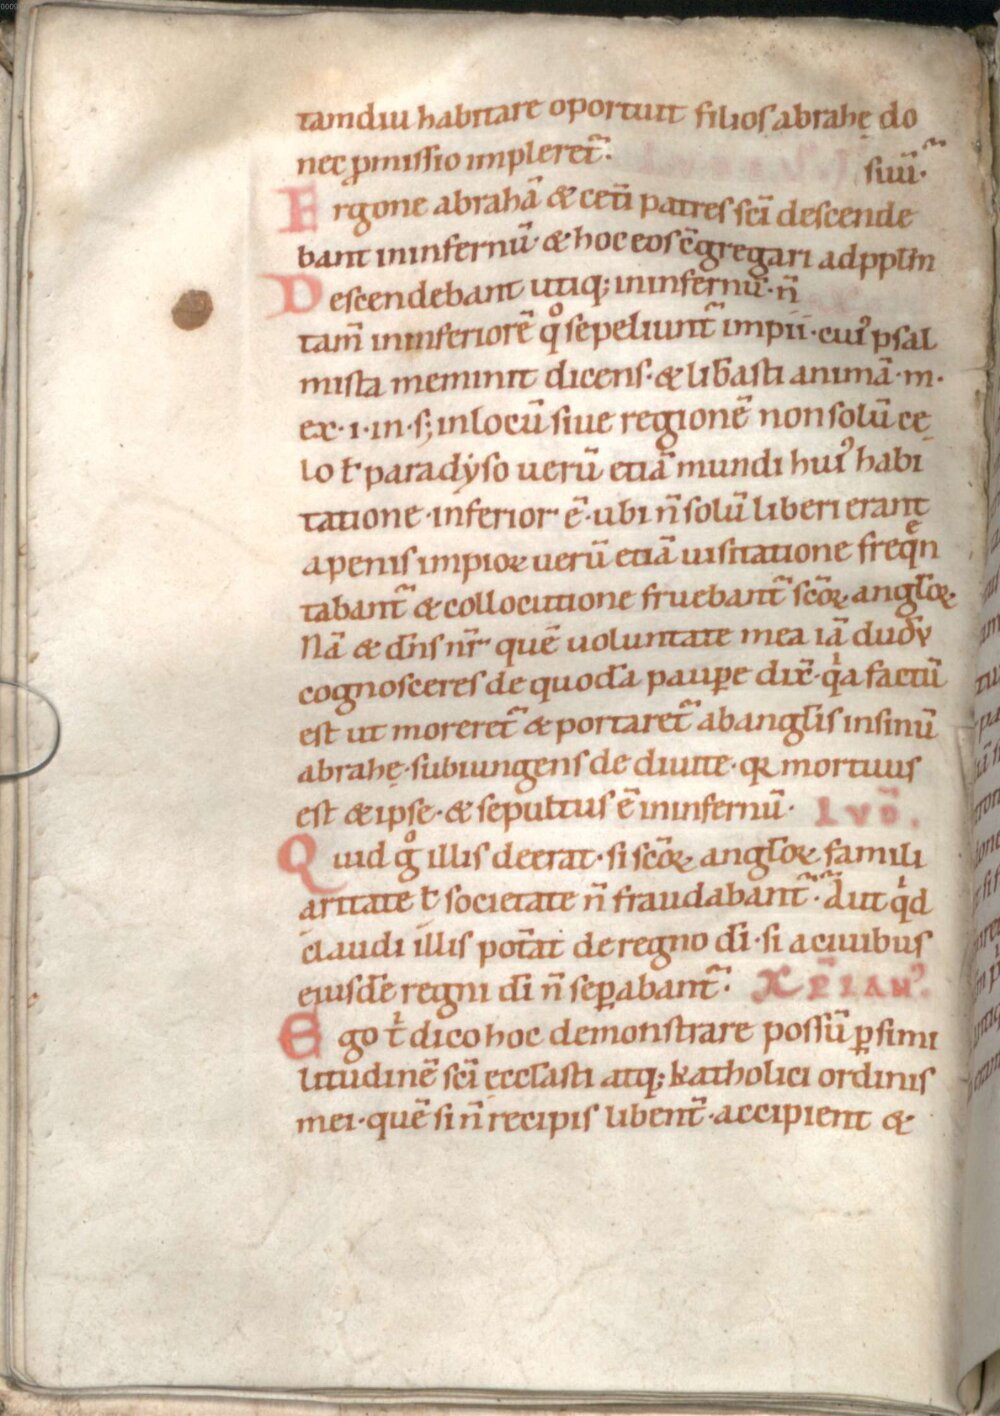 tamdiu habitare oportuit filios abrahę do
nec ꝓmissio impleret᷑.
siuū᷑.
Ergone abrahā & cet̄i patres sc̄i descende
bant ininfernū & hoc eos c̄gregari adppl̄m
Descendebant utiq; ininfernū. n̄
tam̄ ininferiorē qͦ sepeliunt᷑ impii. cui᷒ psal
mista meminit dicens. & lib̄asti animā. m.
ex. i. in. f; inlocū siue regionē nonsolū cę
lo ł paradẏso uerū etiā mundi hui᷒ habi
tatione. inferior ē. ubi n̄ solū liberi erant
apenis impioꝝ uerū etiā uisitatione freqn̄
tabant᷑ & collocutione fruebant᷑ sc̄oꝝ angl̄oꝝ.
Nā & dn̄s nr̄ quē uoluntate mea iā dudū
cognosceres de quodā paupe dix̄. qͥa factū
est ut moreret᷑ & portaret᷑ abangl̄is insinū
abrahę. subiungens de diuite. qꝛ mortuus
est & ipse. & sepultus ē ininfernū. IVD̄.
Quid gͦ illis deerat. si sc̄oꝝ angl̄oꝝ famili
aritate ł societate n̄ fraudabant᷑. Aut qͥd
claudi illis pot̄at de regno dī. si aciuibus
eiusdē regni dī n̄ seꝑabant᷑. XP̄IAN᷒.
Ego tͥ dico hoc demonstrare possū ꝑ simi
litudinē sc̄i eccl̄asti atq; katholici ordinis
mei. quē si n̄ recipis libent̄. accipient &